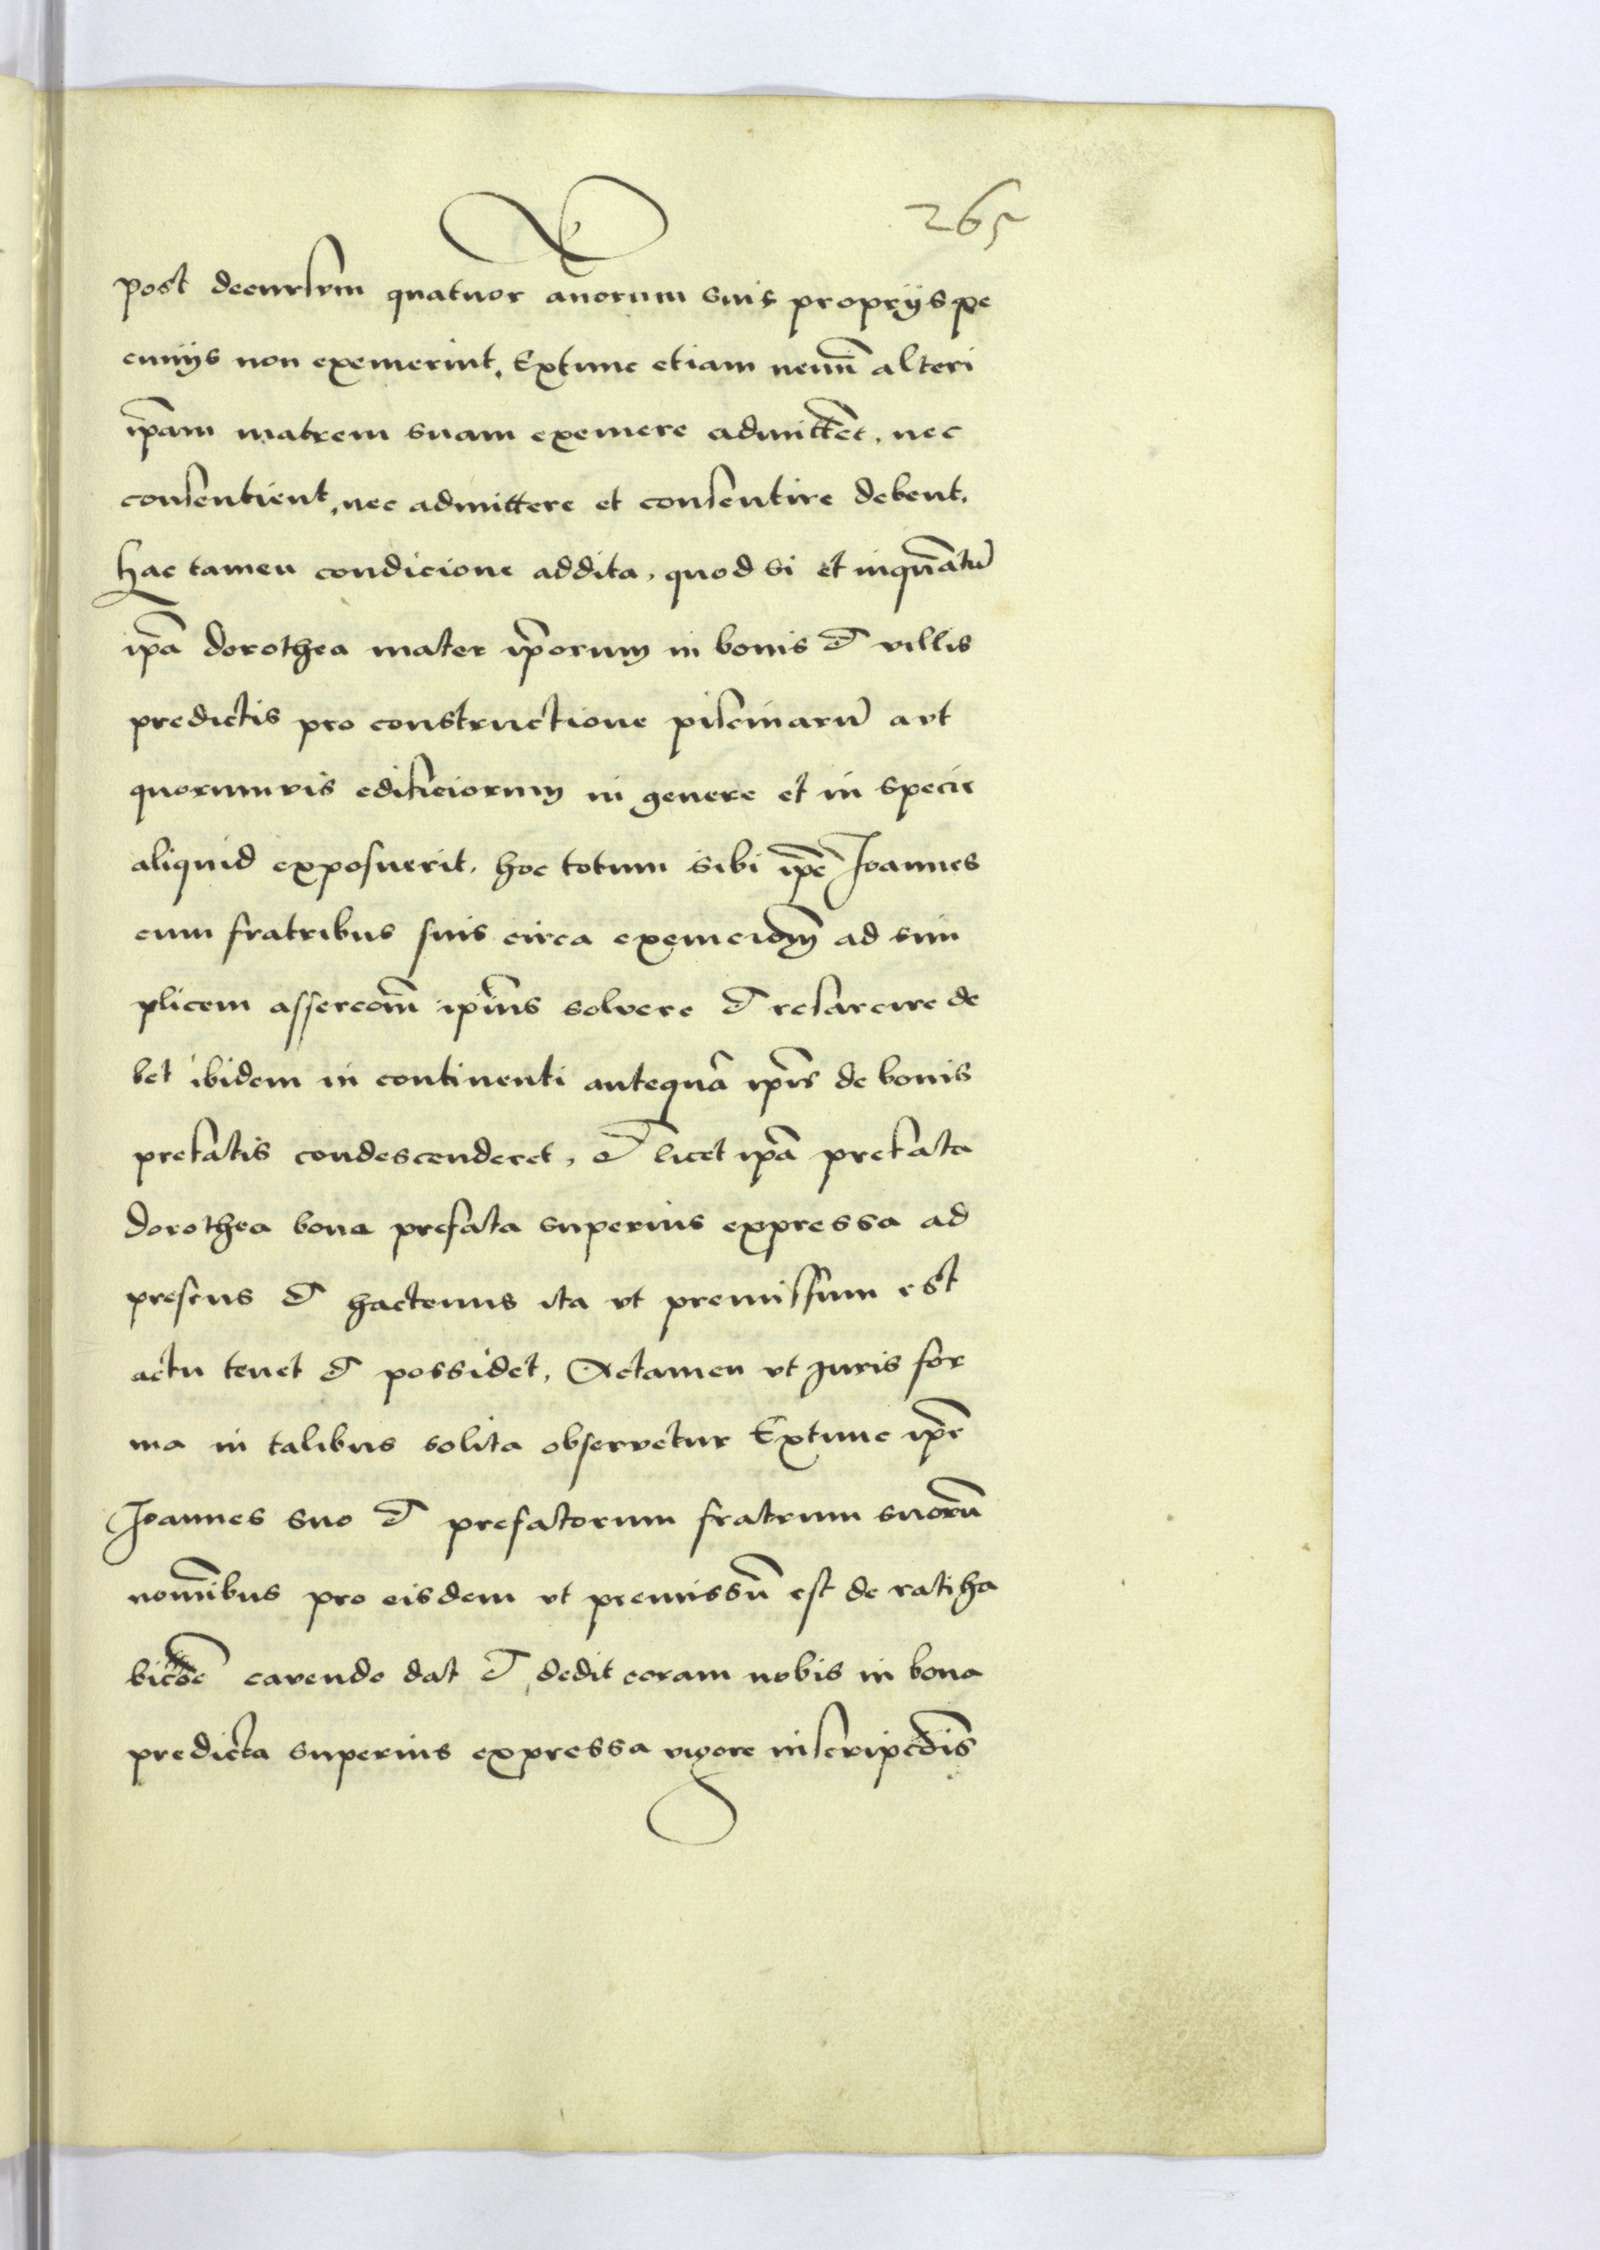 265
post decursum quatuor an̄orum suis proprijs pe
cunijs non exemerint, Extunc etiam nemi͞ alteri
ip̄am matrem suam exemere admitte͞t, nec
consentient, nec admittere et consentire debent,
hac tamen condicione addita, quod si et inqua͞tu͞
ip̄a dorothea mater ip̄orum in bonis et villis
predictis pro constructione piscinaru͞ aut
quorumvis edificiorum in genere et in specie
aliquid exposuerit, hoc totum sibi ip̄e Joannes
cum fratribus suis circa exemcio͞m ad sim
plicem asserco͞m ip̄ius solvere et resarcire de
bet ibidem in continenti antequa͞ ip̄is de bonis
prefatis condescenderet, et licet ip̄a prefata
dorothea bona prefata superius expressa ad
presens et hactenus ita vt premissum est
actu tenet et possidet, Actamen vt Juris for
ma in talibus solita observetur Extunc ip̄e
Joannes suo et prefatorum fratrum suoru͞
nomi͞bus pro eisdem vt premissu͞ est de ratiha
bico͞e cavendo dat et dedit coram nobis in bona
predicta superius expressa vigore inscripco͞is